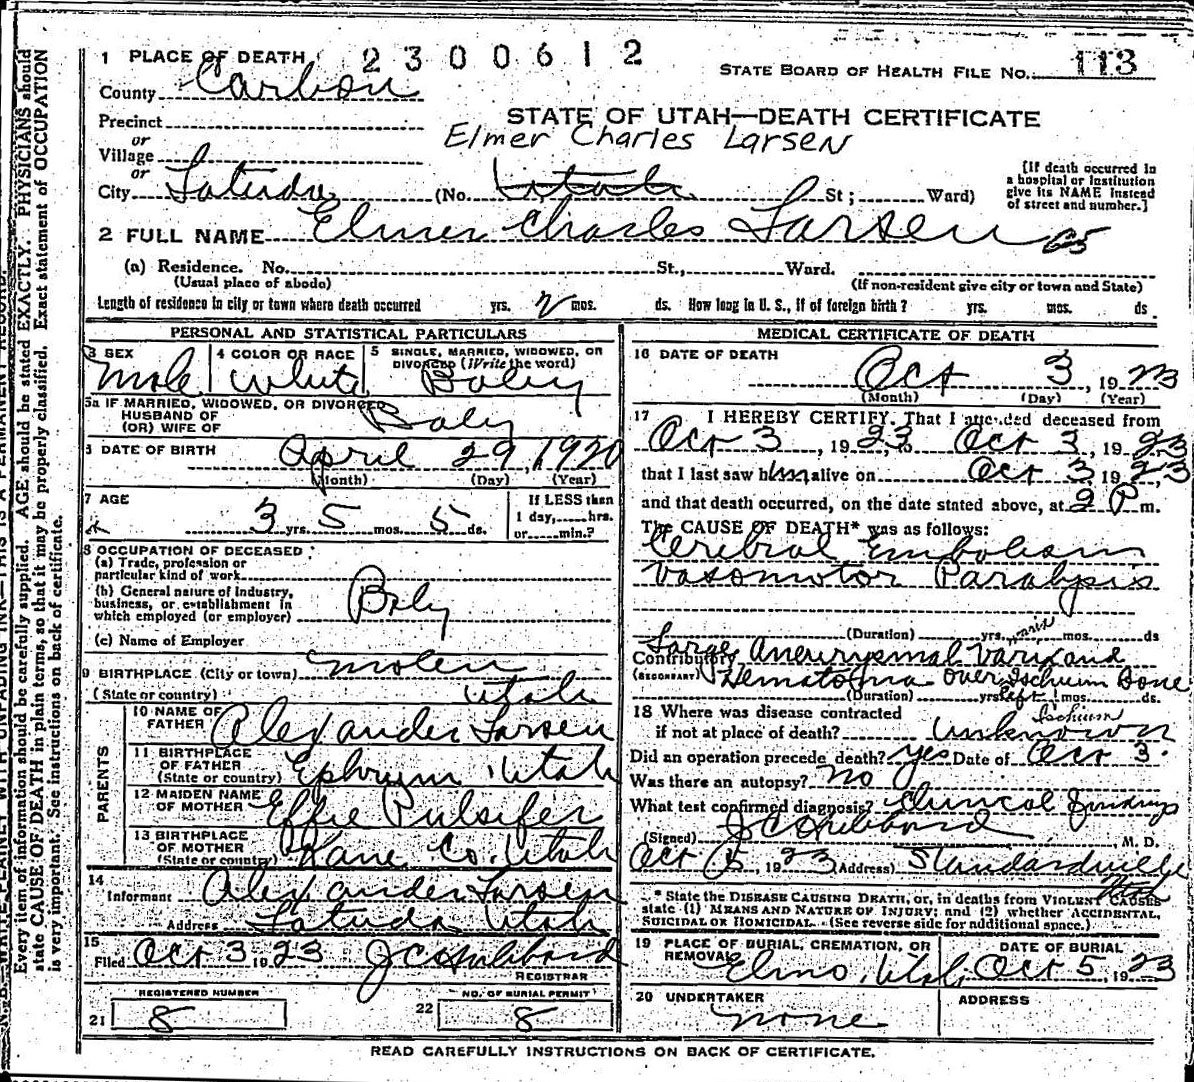 2300612
1 PLACE OF DEATH
STATE BOARD OF HEALTH FILE No. 113
County Carbon
Precinct
STATE OF UTAH—DEATH CERTIFICATE
or
Elmer Charles Larsen
Village
or
City Latuda (No. Utah St; Ward)
[If death occurred in a hospital or institution give its NAME instead of street and number.]
2 FULL NAME Elmer Charles Larsen 65
(a) Residence. No. St., Ward.
(Usual place of abode) (If non-resident give city or town and State)
Length of residence in city or town where death occurred yrs. mos. ds. How long in U. S., if of foreign birth? yrs. mos. ds.
PERSONAL AND STATISTICAL PARTICULARS
3 SEX Male
4 COLOR OR RACE White
5 SINGLE, MARRIED, WIDOWED, OR DIVORCED (Write the word) Baby
5a IF MARRIED, WIDOWED, OR DIVORCED
HUSBAND OF
(OR) WIFE OF Baby
6 DATE OF BIRTH April 29, 1920
(Month) (Day) (Year)
7 AGE 3 yrs. 5 mos. 5 ds.
If LESS than
1 day, hrs.
or min.?
8 OCCUPATION OF DECEASED
(a) Trade, profession or
particular kind of work
(b) General nature of industry,
business, or establishment in
which employed (or employer) Baby
(c) Name of Employer
9 BIRTHPLACE (City or town) Molen
(State or country) Utah
PARENTS
10 NAME OF FATHER Alexander Larsen
11 BIRTHPLACE OF FATHER (State or country) Ephrum, Utah
12 MAIDEN NAME OF MOTHER Effie Pulsifer
13 BIRTHPLACE OF MOTHER (State or country) Kane Co. Utah
14 Informant Alexander Larsen
Address Latuda Utah
15 Filed Oct 3 1923 J C Hubbard
REGISTRAR
REGISTERED NUMBER
21 8
NO. OF BURIAL PERMIT
22 8
MEDICAL CERTIFICATE OF DEATH
16 DATE OF DEATH
Oct 3, 1923
(Month) (Day) (Year)
17 I HEREBY CERTIFY, That I attended deceased from
Oct 3, 1923, to Oct 3, 1923
that I last saw him alive on Oct 3 1923,
and that death occurred, on the date stated above, at 2 P m.
The CAUSE OF DEATH* was as follows:
Cerebral Embolism
Vasomotor Paralysis
(Duration) yrs. mos. ds
Contributory Large Aneurysmal Varix and
(SECONDARY) Hematoma over Ischium Bone
(Duration) yrs. left mos. ds.
Ischium
18 Where was disease contracted
if not at place of death? Unknown
Did an operation precede death? yes Date of Oct 3.
Was there an autopsy? No
What test confirmed diagnosis? Clinical findings
(Signed) J C Hubbard, M. D.
Oct 5, 1923 (Address) Standardville
Utah
* State the DISEASE CAUSING DEATH, or, in deaths from VIOLENT CAUSES
state (1) MEANS AND NATURE OF INJURY; and (2) whether ACCIDENTAL,
SUICIDAL OR HOMICIDAL. (See reverse side for additional space.)
19 PLACE OF BURIAL, CREMATION, OR REMOVAL Elmo, Utah
DATE OF BURIAL Oct 5, 1923
20 UNDERTAKER none
ADDRESS
READ CAREFULLY INSTRUCTIONS ON BACK OF CERTIFICATE.
Every item of information should be carefully supplied. AGE should be stated EXACTLY. PHYSICIANS should
state CAUSE OF DEATH in plain terms, so that it may be properly classified. Exact statement of OCCUPATION
is very important. See instructions on back of certificate.